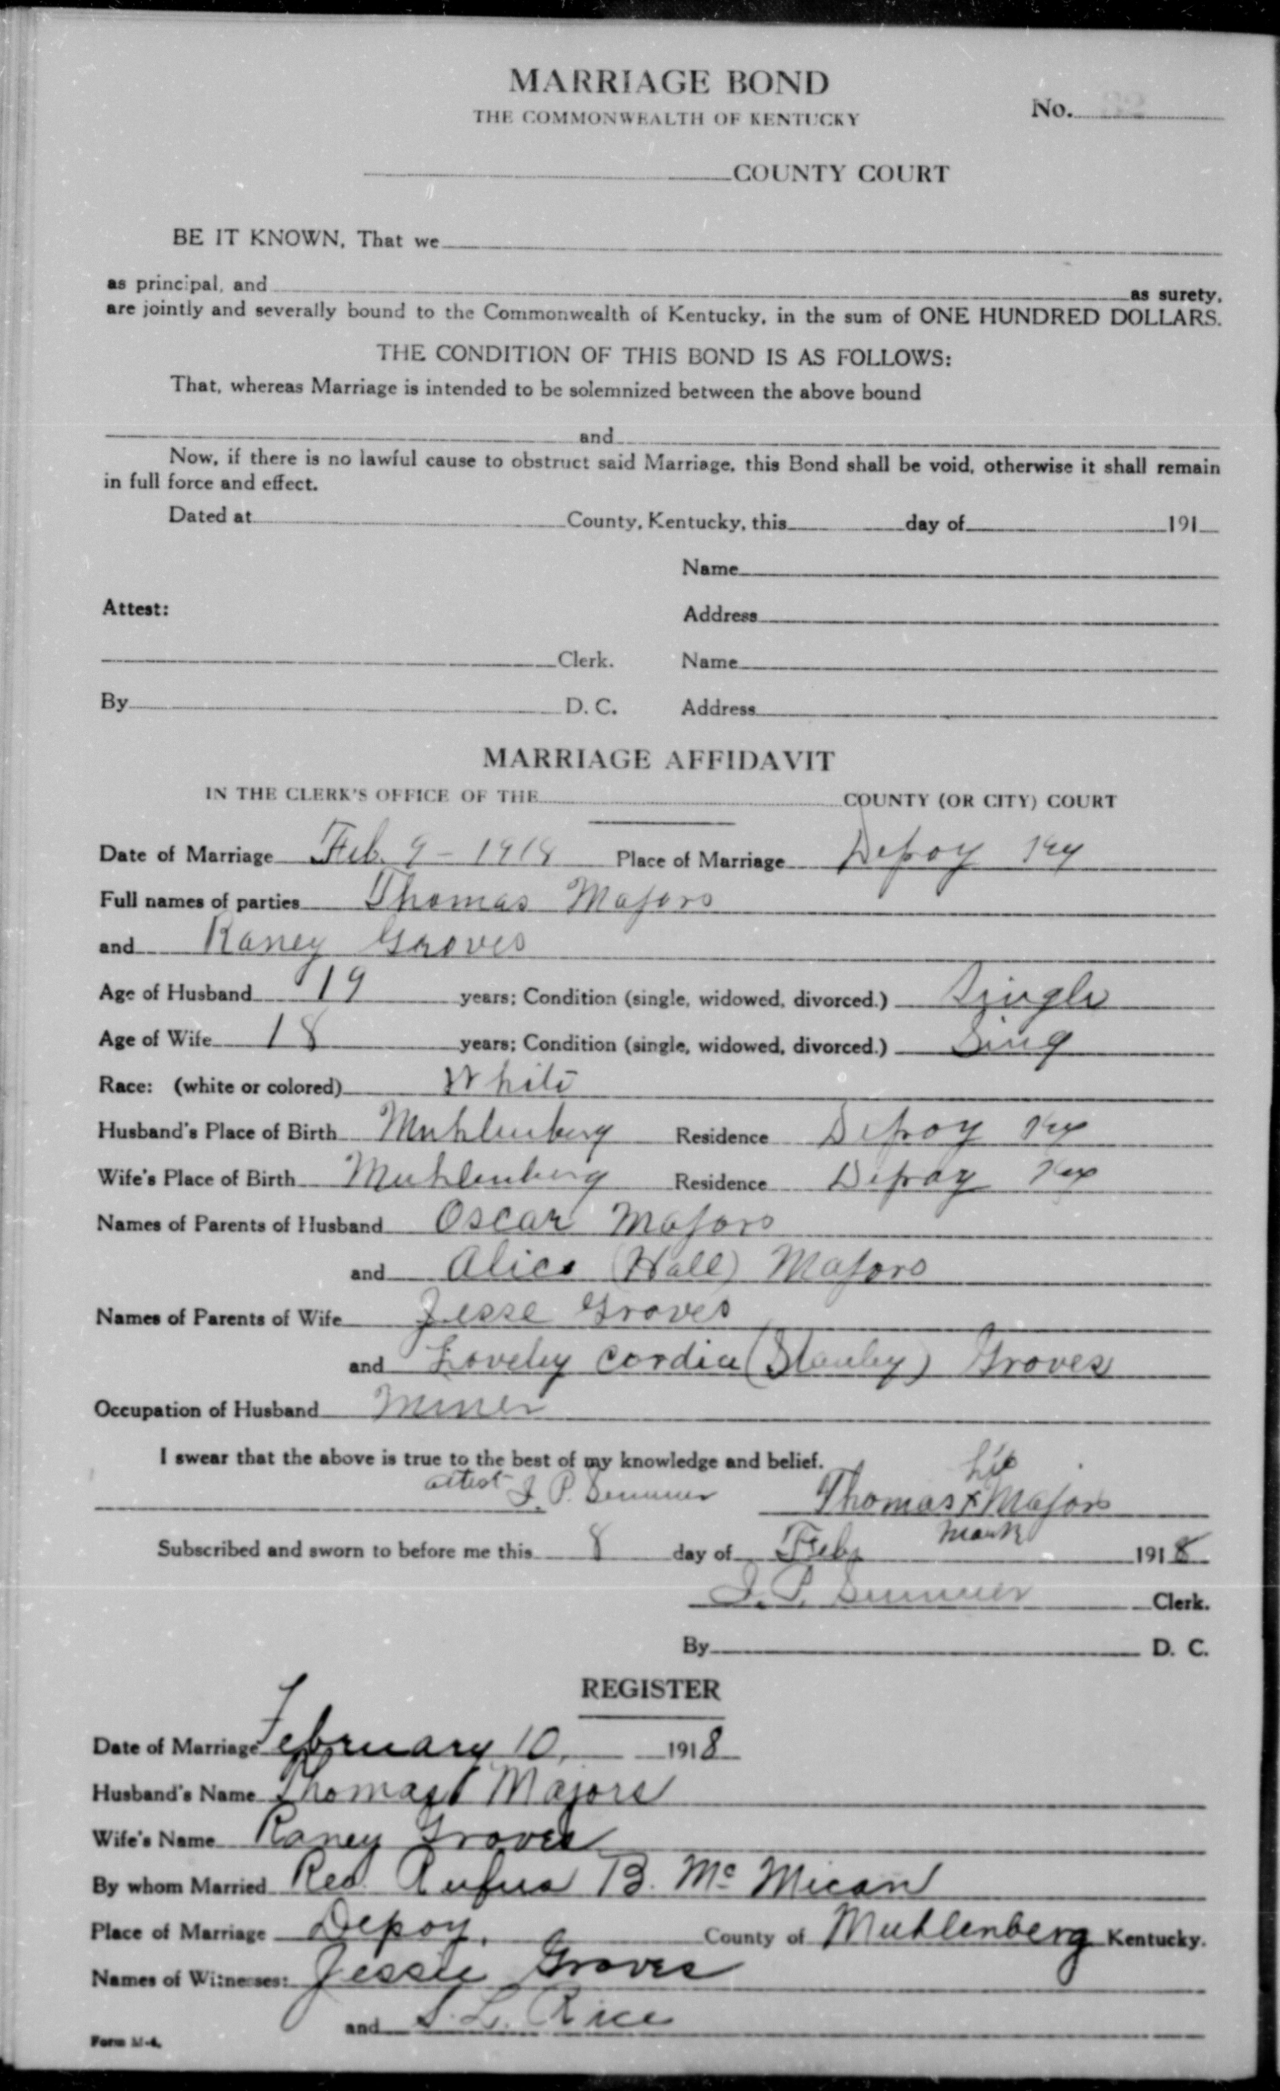 MARRIAGE BOND
THE COMMONWEALTH OF KENTUCKY
No.
COUNTY COURT
BE IT KNOWN, That we
as principal, and as surety,
are jointly and severally bound to the Commonwealth of Kentucky, in the sum of ONE HUNDRED DOLLARS.
THE CONDITION OF THIS BOND IS AS FOLLOWS:
That, whereas Marriage is intended to be solemnized between the above bound
and
Now, if there is no lawful cause to obstruct said Marriage, this Bond shall be void, otherwise it shall remain
in full force and effect.
Dated at County, Kentucky, this day of 191
Name
Attest: Address
Clerk. Name
By D. C. Address
MARRIAGE AFFIDAVIT
IN THE CLERK'S OFFICE OF THE COUNTY (OR CITY) COURT
Date of Marriage Feb. 9 - 1918 Place of Marriage Depoy Ky
Full names of parties Thomas Majors
and Raney Groves
Age of Husband 19 years; Condition (single, widowed, divorced.) Single
Age of Wife 18 years; Condition (single, widowed, divorced.) Sing
Race: (white or colored) White
Husband's Place of Birth Muhlenberg Residence Depoy Ky
Wife's Place of Birth Muhlenberg Residence Depoy Ky
Names of Parents of Husband Oscar Majors
and Alice (Hall) Majors
Names of Parents of Wife Jesse Groves
and Lovely Cordia (Stanley) Groves
Occupation of Husband Miner
I swear that the above is true to the best of my knowledge and belief.
his
attest J. P. Summer Thomas x Majors
mark
Subscribed and sworn to before me this 8 day of Feb. 1918
J. P. Summer Clerk.
By D. C.
REGISTER
Date of Marriage February 10, 1918
Husband's Name Thomas Majors
Wife's Name Raney Groves
By whom Married Rev. Rufus B. Mc Mican
Place of Marriage Depoy, County of Muhlenberg Kentucky.
Names of Witnesses: Jessie Groves
and S. L. Rice
Form M-4.